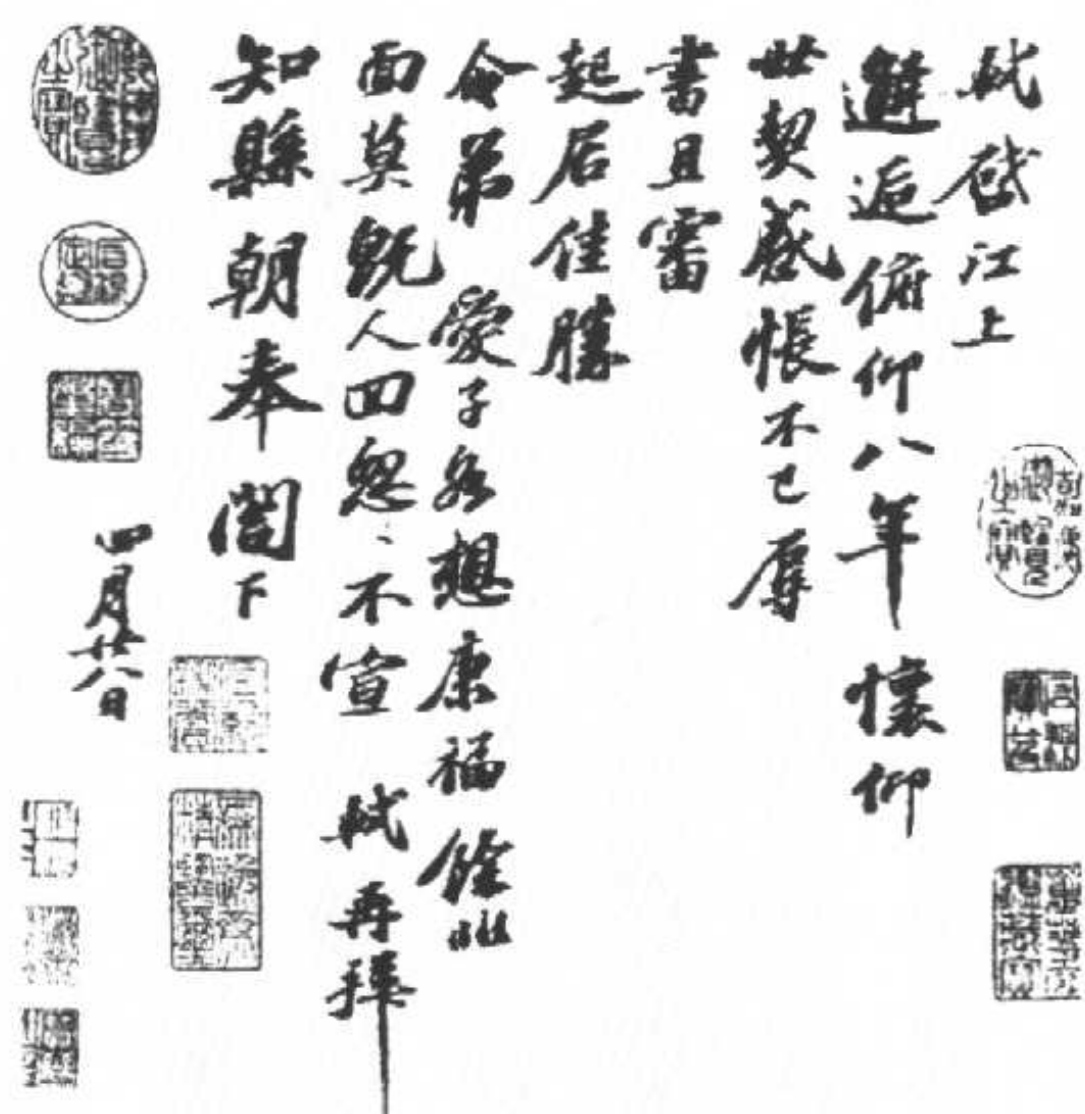 軾啓江上
邂逅俯仰八年懷仰
世契感悵不已辱
書且審
起居佳勝
令弟愛子各想康福餘非
面莫既人回怱、不宣軾再拜
知縣朝奉閤下
四月廿八日